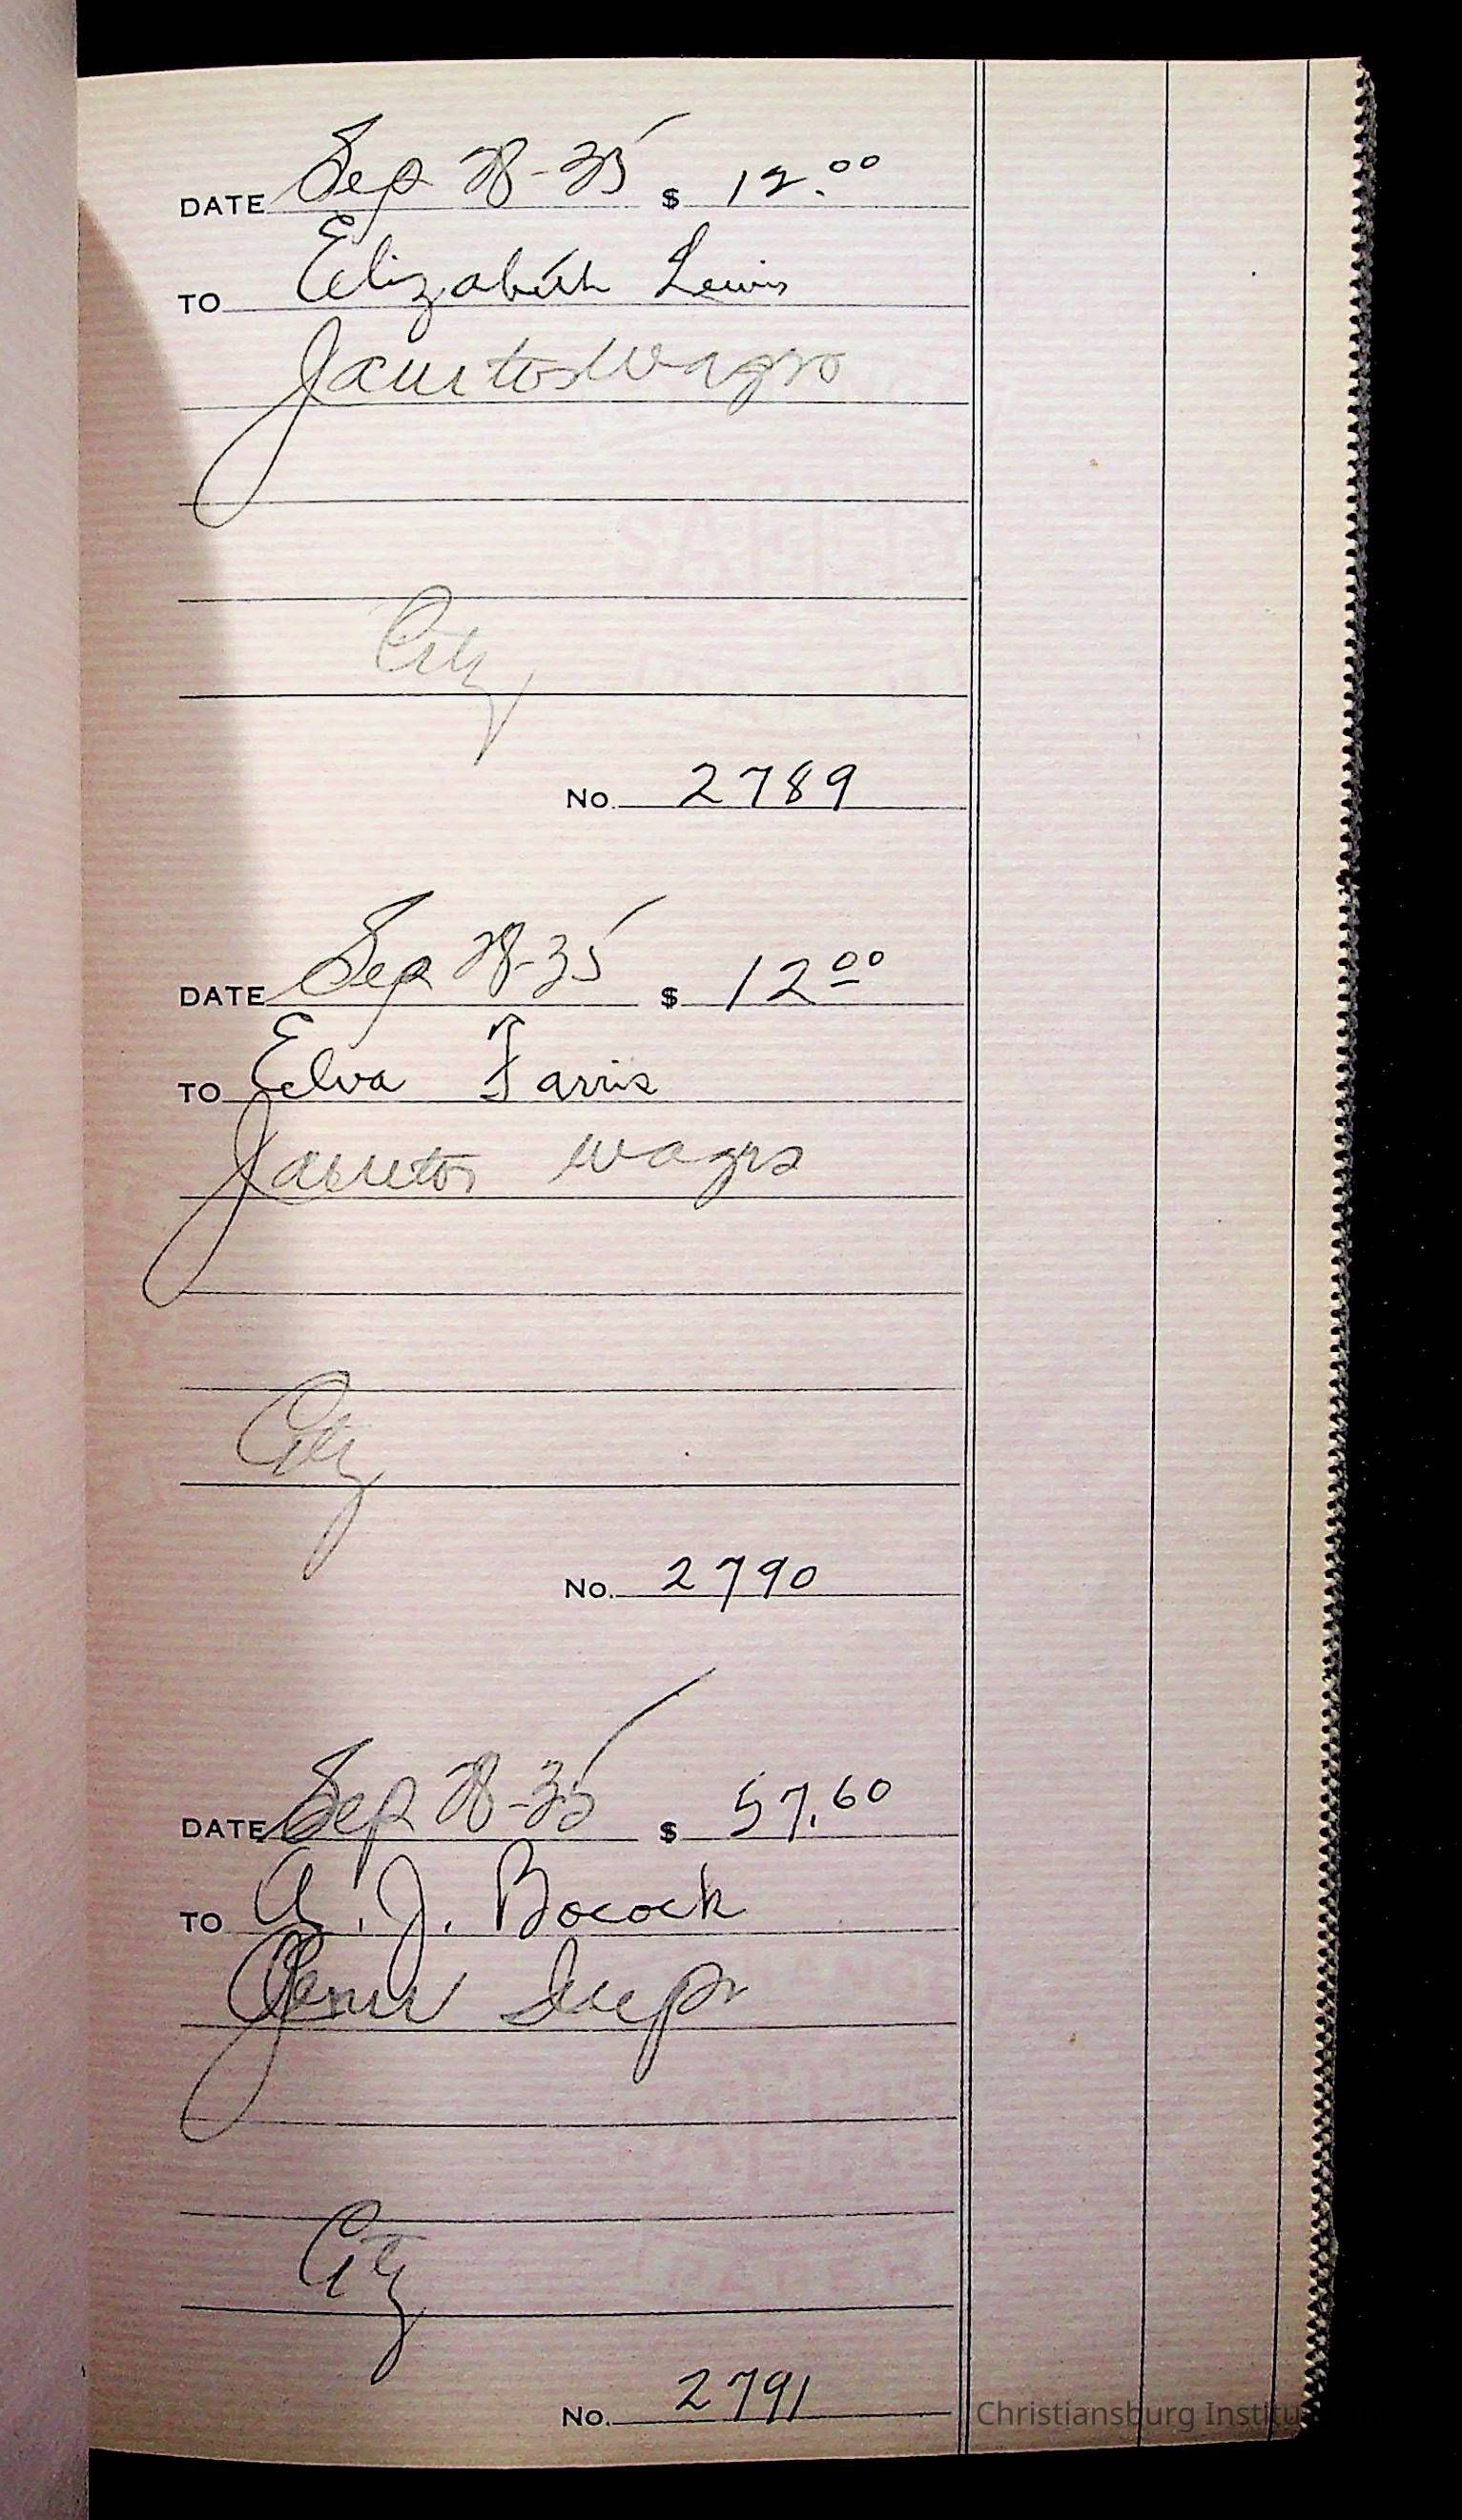 DATE Sep 28-35 $ 12.00
TO Elizabeth Lewis
Janitor Wages
City
No. 2789
DATE Sep 28-35 $ 12 00
TO Elva Farris
Janitor wages
City
No. 2790
DATE Sep 28-35 $ 57.60
TO A. J. Bocock
City
No. 2791
Christiansburg Institu